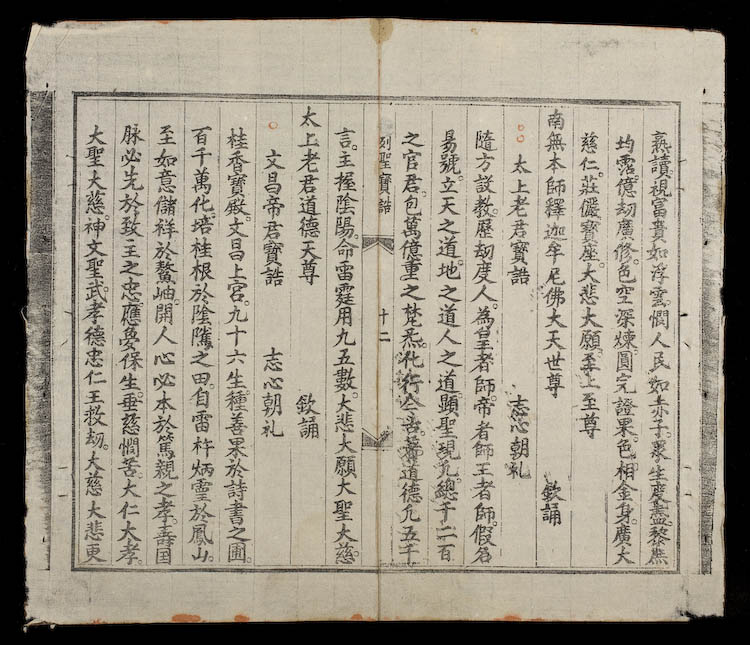 熟讀。視富貴如浮雲。憫人民如赤子。眾生度盡。黎庶
均霑。億劫廣修。色空深煉。圓完證果。色相金身。廣大
慈仁。莊儼寶座。大悲大願。至上至尊
南無本師釋迦牟尼佛大天世尊 欽誦
太上老君寶誥 志心朝礼
隨方設教。歷劫度人。為皇者師。帝者師。王者師。假名
易號。立天之道。地之道。人之道。顯聖現凡。總千二百
之官君。包萬億重之梵炁。化行今古。著道德凡五千
列聖寶誥 十二
言。主握陰陽。命雷霆用九五數。大悲大願大聖大慈
太上老君道德天尊 欽誦
文昌帝君寶誥 志心朝礼
桂香寶殿。文昌上宮。九十六生。種善果於詩書之圃。
百千萬化。培桂根於陰隲之田。自雷杼炳靈於鳳山。
至如意儲祥於鰲岫。開人心必本於篤親之孝。壽国
脉必先於致主之忠。應夢保生。垂慈憫苦。大仁大孝。
大聖大慈。神文聖武。孝德忠仁王救劫。大慈大悲更